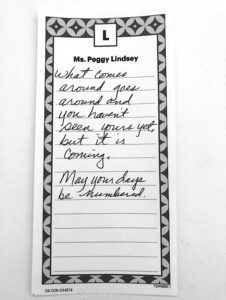 L
Ms. Peggy Lindsey
What comes
around goes
around and
you haven't
seen yours yet,
but it is
coming.
May your days
be numbered.